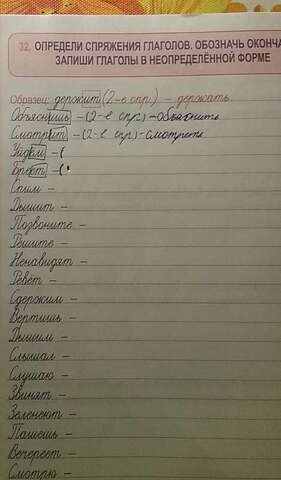 32. ОПРЕДЕЛИ СПРЯЖЕНИЯ ГЛАГОЛОВ. ОБОЗНАЧЬ ОКОНЧА
ЗАПИШИ ГЛАГОЛЫ В НЕОПРЕДЕЛЁННОЙ ФОРМЕ
Образец: держит (2-е спр.) – держать.
Объяснишь – (2-е спр.) – Объяснить
Смотрит – (2-е спр.) – смотреть
Уйдём – (
Бреет – (
Спим –
Дышит –
Позвоните –
Решите –
Ненавидят –
Ревёт –
Сдержим –
Вертишь –
Дышим –
Слышал –
Слушаю –
Звинят –
Зеленеют –
Пашешь –
Вечереет –
Смотрю –